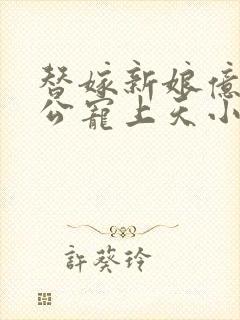 替嫁新娘億
公寵上天小
許葵玲